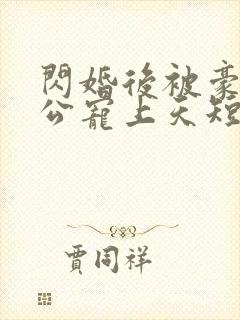 閃婚後被豪
公寵上天短
賈同祥